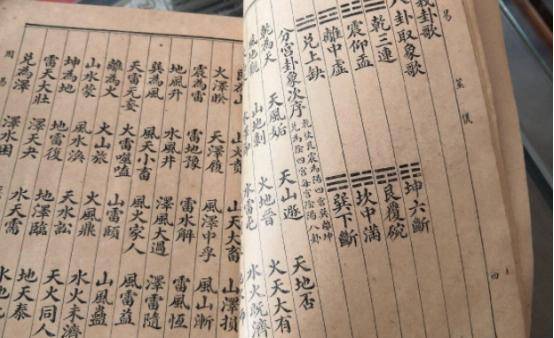 易 筮儀 四
卦歌
八卦取象歌
乾三連 坤六斷
震仰盂 艮覆碗
離中虛 坎中滿
兌上缺 巽下斷
分宮卦象次序 乾坎艮震為陽四宮巽離坤兌為陰四宮每宮陰陽八卦
乾為天 天風姤 天山遯 天地否
山地剝 火地晉 火天大有
水雷屯 水火既濟
山火賁 山天大畜 山澤損
火澤睽 天澤履 風澤中孚 風山漸
震為雷 雷地豫 雷水解 雷風恆
地風升 水風井 澤風大過 澤雷隨
巽為風 風天小畜 風火家人 風雷益
天雷无妄 火雷噬嗑 山雷頤 山風蠱
離為火 火山旅 火風鼎 火水未濟
山水蒙 風水渙 天水訟 天火同人
坤為地 地雷復 地澤臨 地天泰
雷天大壯 澤天夬 水天需 水地
兌為澤 澤水困
周易